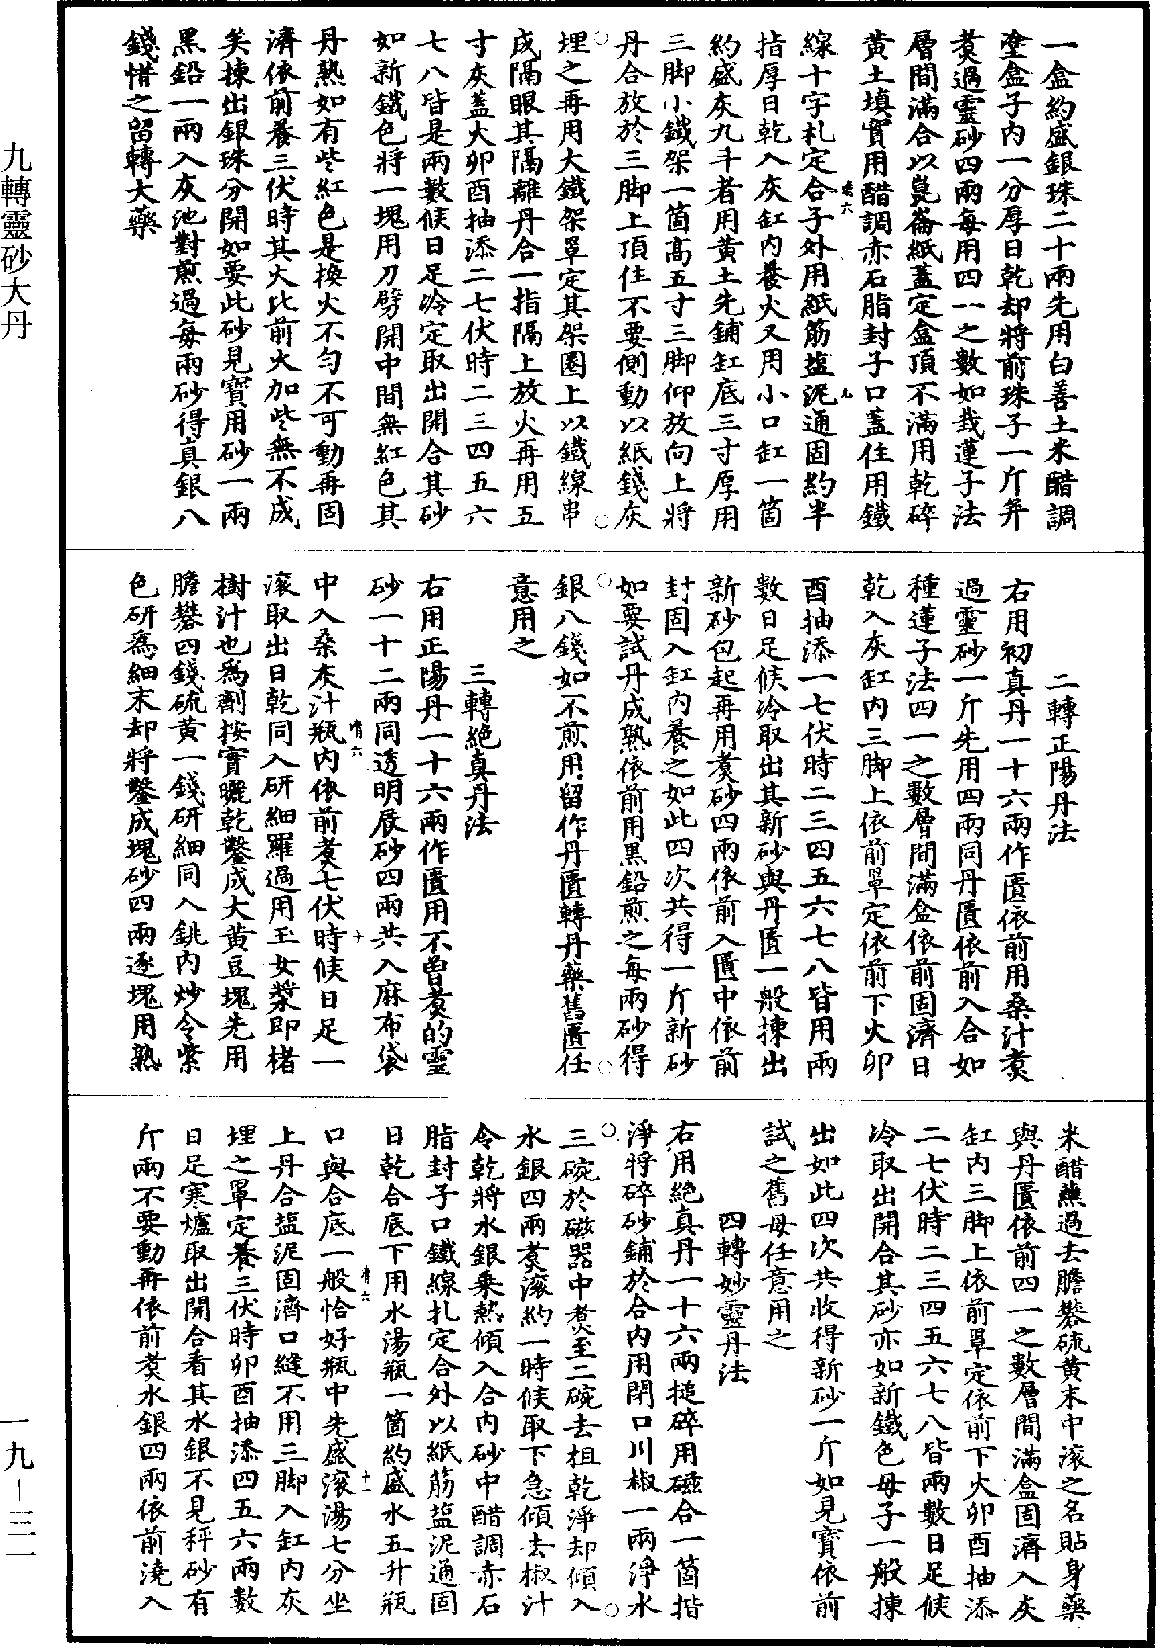 一盒約盛銀珠二十兩先用白善土米醋調
塗盒子內一分厚日乾却將前珠子一斤并
煑過靈砂四兩每用四一之數如栽蓮子法
層間滿合以崑崙紙蓋定盒頂不滿用乾碎
黃土填實用醋調赤石脂封子口蓋住用鐵
線十字札定合子外用紙筋塩泥通固約半
指厚日乾入灰缸內養火又用小口缸一箇
約盛灰九斗者用黃土先鋪缸底三寸厚用
三脚小鐵架一箇高五寸三脚仰放向上將
丹合放於三脚上頂住不要側動以紙錢灰
埋之再用大鐵架罩定其架圈上以鐵線串
成隔眼其隔離丹合一指隔上放火再用五
寸灰蓋火卯酉抽添二七伏時二三四五六
七八皆是兩數候日足冷定取出開合其砂
如新鐵色將一塊用刀劈開中間無紅色其
丹熟如有些紅色是換火不勻不可動再固
濟依前養三伏時其火比前火加些無不成
矣揀出銀珠分開如要此砂見寶用砂一兩
黑鉛一兩入灰池對煎過每兩砂得真銀八
錢惜之留轉大藥
二轉正陽丹法
右用初真丹一十六兩作匱依前用桑汁煑
過靈砂一斤先用四兩同丹匱依前入合如
種蓮子法四一之數層間滿盒依前固濟日
乾入灰缸內三脚上依前罩定依前下火卯
酉抽添一七伏時二三四五六七八皆用兩
數日足候冷取出其新砂與丹匱一般揀出
新砂包起再用煑砂四兩依前入匱中依前
封固入缸內養之如此四次共得一斤新砂
如要試丹成熟依前用黑鉛煎之每兩砂得
銀八錢如不煎用留作丹匱轉丹藥舊匱任
意用之
三轉絶真丹法
右用正陽丹一十六兩作匱用不曾煑的靈
砂一十二兩同透明辰砂四兩共入麻布袋
中入桑灰汁瓶內依前煑七伏時候日足一
滾取出日乾同入研細羅過用玉女漿即楮
樹汁也爲劑按實曬乾鑿成大黃豆塊先用
膽礬四錢硫黃一錢研細同入銚內炒令紫
色研爲細末却將鑿成塊砂四兩逐塊用熟
米醋蘸過去膽礬硫黃末中滾之名貼身藥
與丹匱依前四一之數層間滿盒固濟入灰
缸內三脚上依前罩定依前下火卯酉抽添
二七伏時二三四五六七八皆兩數日足候
冷取出開合其砂亦如新鐵色母子一般揀
出如此四次共收得新砂一斤如見寶依前
試之舊母任意用之
四轉妙靈丹法
右用絶真丹一十六兩搥碎用磁合一箇揩
淨將碎砂鋪於合內用閉口川椒一兩淨水
三碗於磁器中煑至二碗去柤乾淨却傾入
水銀四兩煑滾約一時候取下急傾去椒汁
令乾將水銀乘熱傾入合內砂中醋調赤石
脂封子口鐵線扎定合外以紙筋塩泥通固
日乾合底下用水湯瓶一箇約盛水五升瓶
口與合底一般恰好瓶中先盛滾湯七分坐
上丹合塩泥固濟口縫不用三脚入缸內灰
埋之罩定養三伏時卯酉抽添四五六兩數
日足寒爐取出開合看其水銀不見秤砂有
斤兩不要動再依前煑水銀四兩依前澆入
九轉靈砂大丹
一九—三一